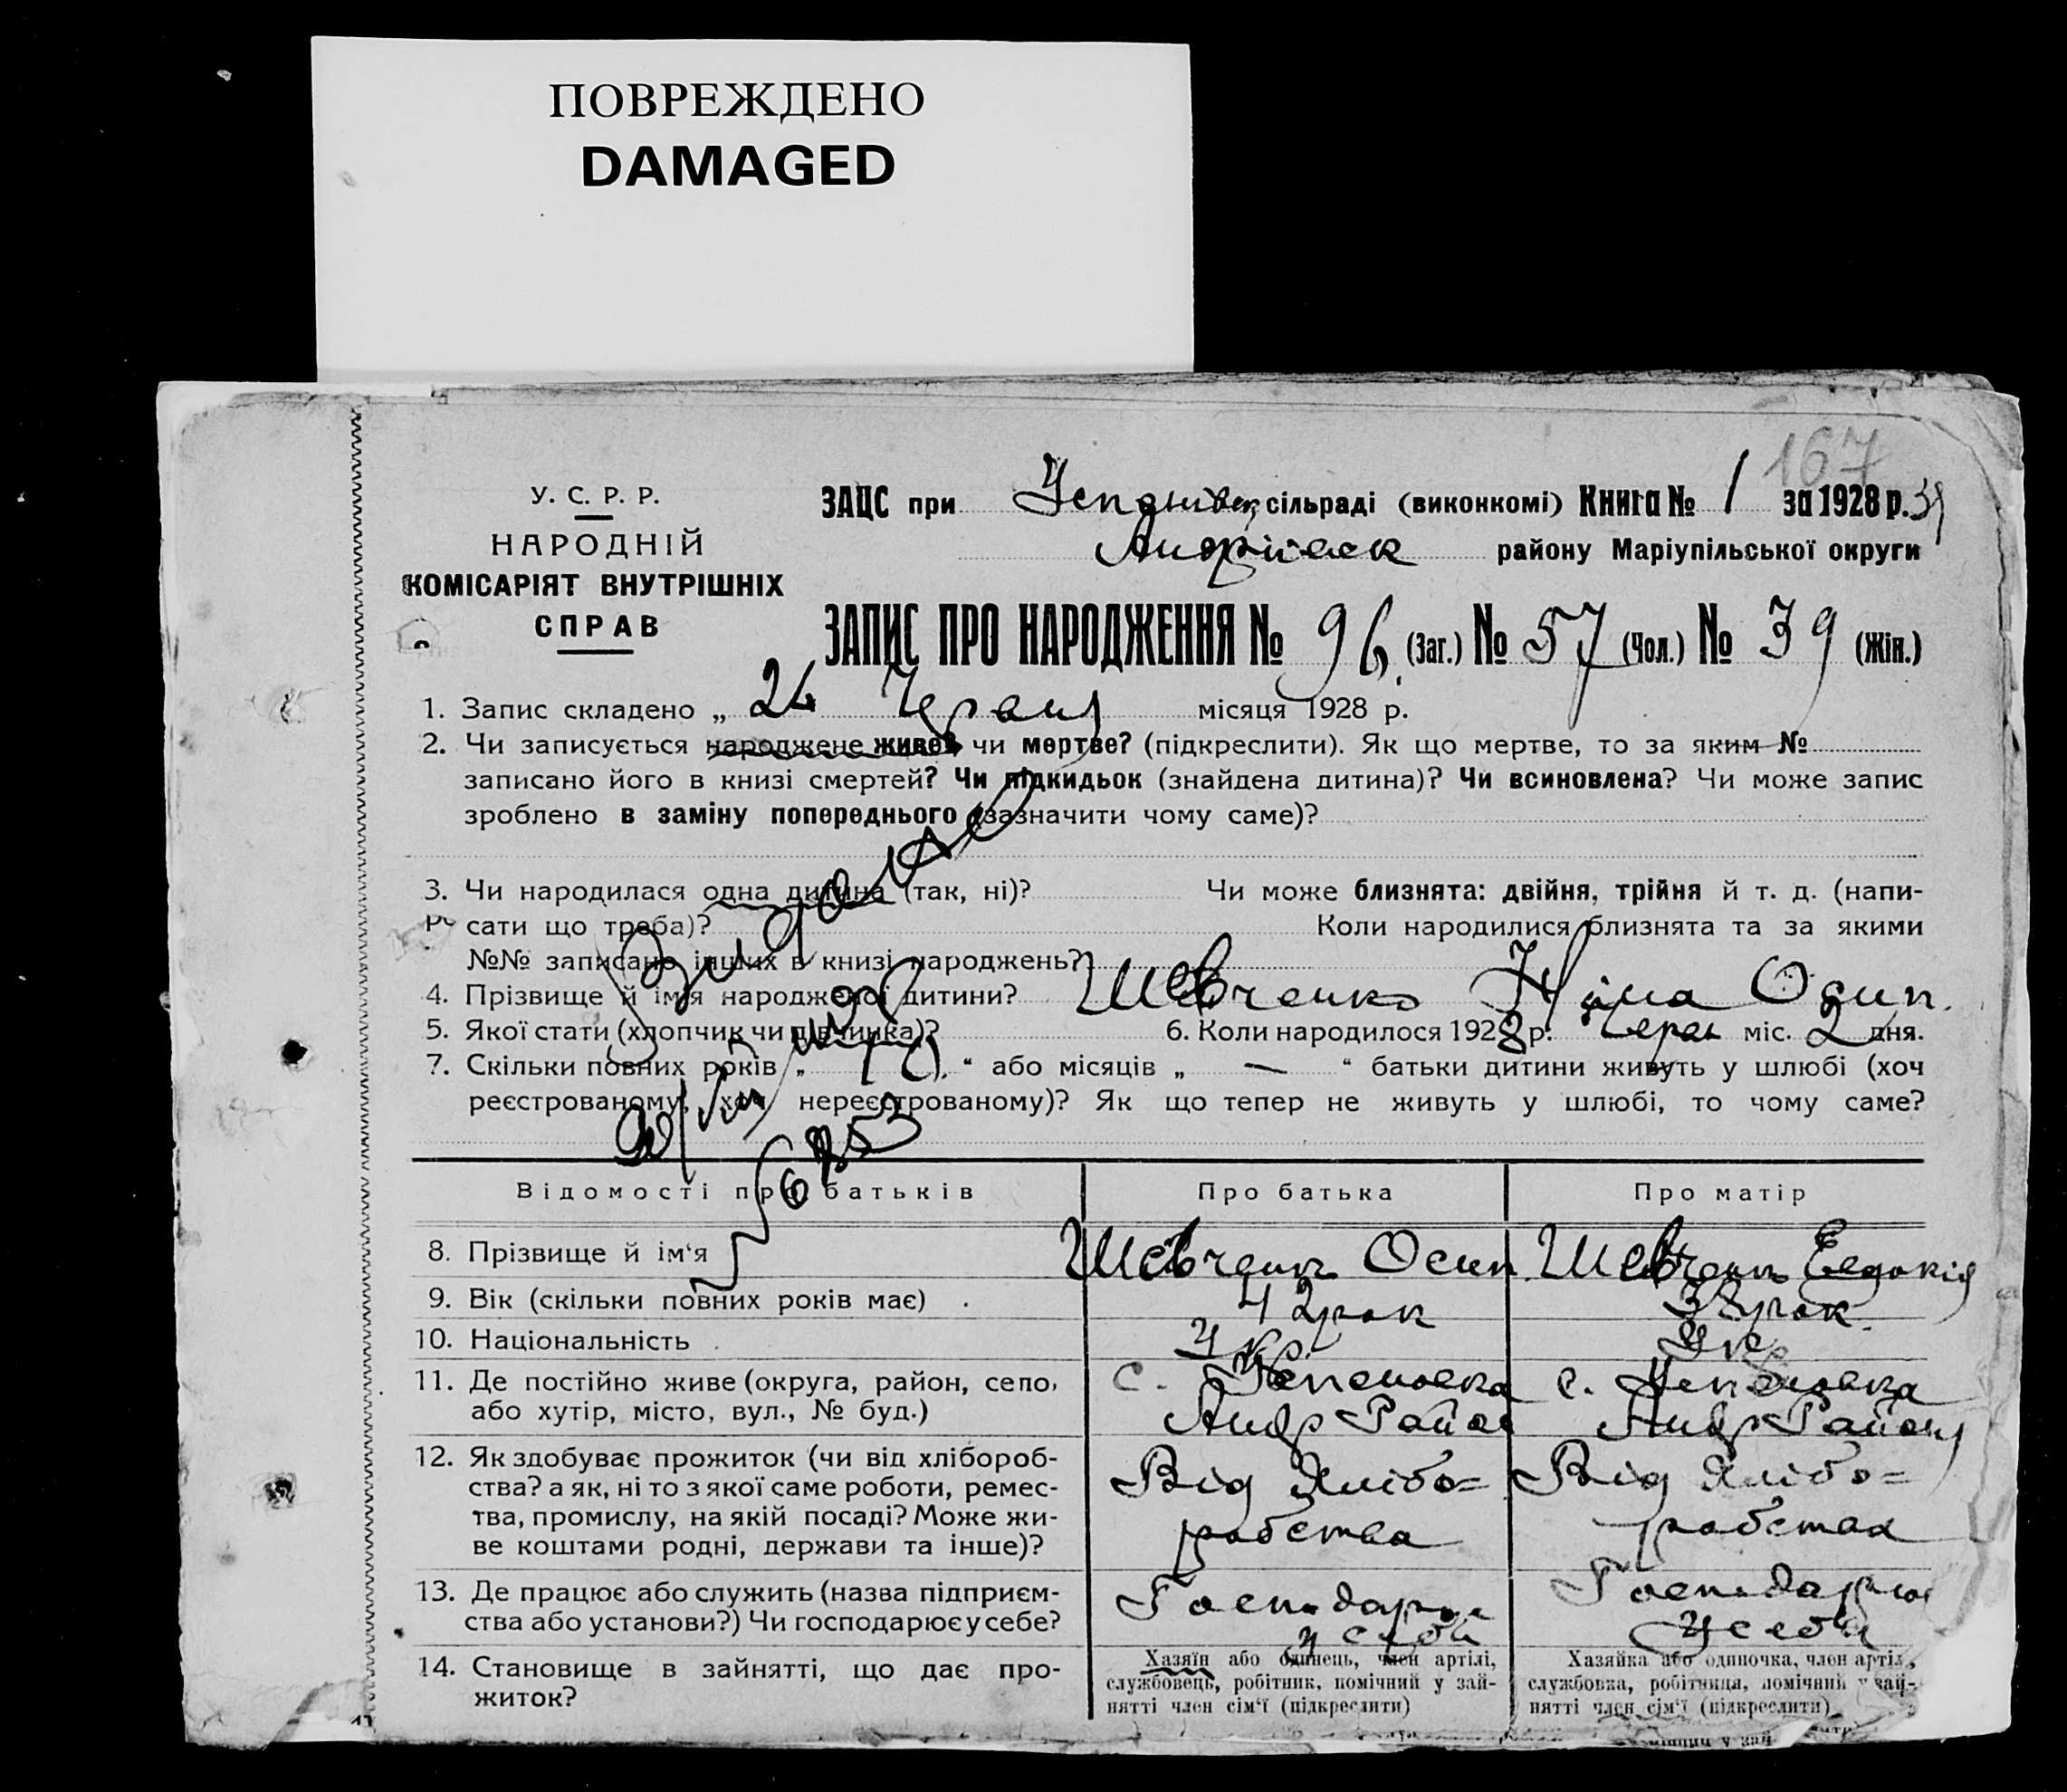 ПОВРЕЖДЕНО
DAMAGED
167
У. С. Р. Р.
НАРОДНІЙ
КОМІСАРІЯТ ВНУТРІШНІХ
СПРАВ
ЗАЦС при сільраді (виконкомі) Книга № 1 за 1928 р.
Андріївськ району Маріупільської округи
ЗАПИС ПРО НАРОДЖЕННЯ № 96 (Заг.) № 57 (Чол.) № 39 (Жін.)
1. Запис складено „ 24 Червня місяця 1928 р.
2. Чи записується народжене живе? чи мертве? (підкреслити). Як що мертве, то за яким №
записано його в книзі смертей? Чи підкидьок (знайдена дитина)? Чи всиновлена? Чи може запис
зроблено в заміну попереднього (зазначити чому саме)?
3. Чи народилася одна дитина (так, ні)? Чи може близнята: двійня, трійня й т. д. (напи-
сати що треба)? Коли народилися близнята та за якими
№№ записано інших в книзі народжень?
4. Прізвище й ім'я народженої дитини? Шевченко Ніна Осип.
5. Якої стати (хлопчик чи дівчинка)? 6. Коли народилося 1928 р. Черв міс. 2 дня.
7. Скільки повних років „ “ або місяців „ — “ батьки дитини живуть у шлюбі (хоч
реєстрованому, хоч нереєстрованому)? Як що тепер не живуть у шлюбі, то чому саме?
Відомості про батьків Про батька Про матір
8. Прізвище й ім‘я Шевченко Осип. Шевченко Евдокія
9. Вік (скільки повних років має) . 42 рок рок.
10. Національність . Укр. Ук
11. Де постійно живе (округа, район, село,
або хутір, місто, вул., № буд.)
с. с.
Андр Район Андр Району
12. Як здобуває прожиток (чи від хлібороб-
ства? а як, ні то з якої саме роботи, ремес-
тва, промислу, на якій посаді? Може жи-
ве коштами родні, держави та інше)?
Від Хлібо= Від Хлібо=
робства робства
13. Де працює або служить (назва підприєм-
ства або установи?) Чи господарює у себе?
Господарює Господарює
у себе у себе
14. Становище в зайнятті, що дає про-
житок?
Хазяїн або одинець, член артілі,
службовець, робітник, помічний у зай-
нятті член сім‘ї (підкреслити)
Хазяйка або одиночка, член артіл,
службовка, робітниця, помічний у зай-
нятті член сім‘ї (підкреслити)